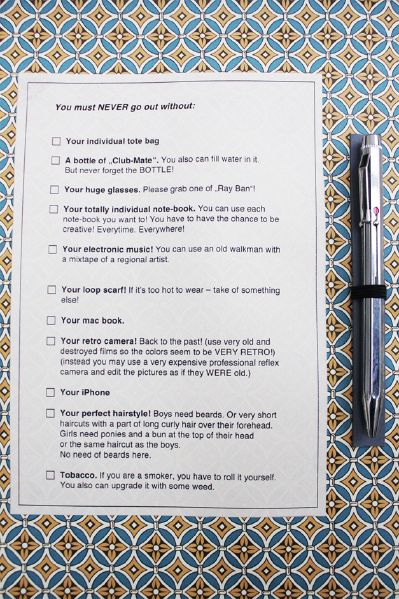 You must NEVER go out without:
Your individual tote bag
A bottle of „Club-Mate“. You also can fill water in it.
But never forget the BOTTLE!
Your huge glasses. Please grab one of „Ray Ban“!
Your totally individual note-book. You can use each
note-book you want to! You have to have the chance to be
creative! Everytime. Everywhere!
Your electronic music! You can use an old walkman with
a mixtape of a regional artist.
Your loop scarf! If it's too hot to wear – take of something
else!
Your mac book.
Your retro camera! Back to the past! (use very old and
destroyed films so the colors seem to be VERY RETRO!)
(instead you may use a very expensive professional reflex
camera and edit the pictures as if they WERE old.)
Your iPhone
Your perfect hairstyle! Boys need beards. Or very short
haircuts with a part of long curly hair over their forehead.
Girls need ponies and a bun at the top of their head
or the same haircut as the boys.
No need of beards here.
Tobacco. If you are a smoker, you have to roll it yourself.
You also can upgrade it with some weed.